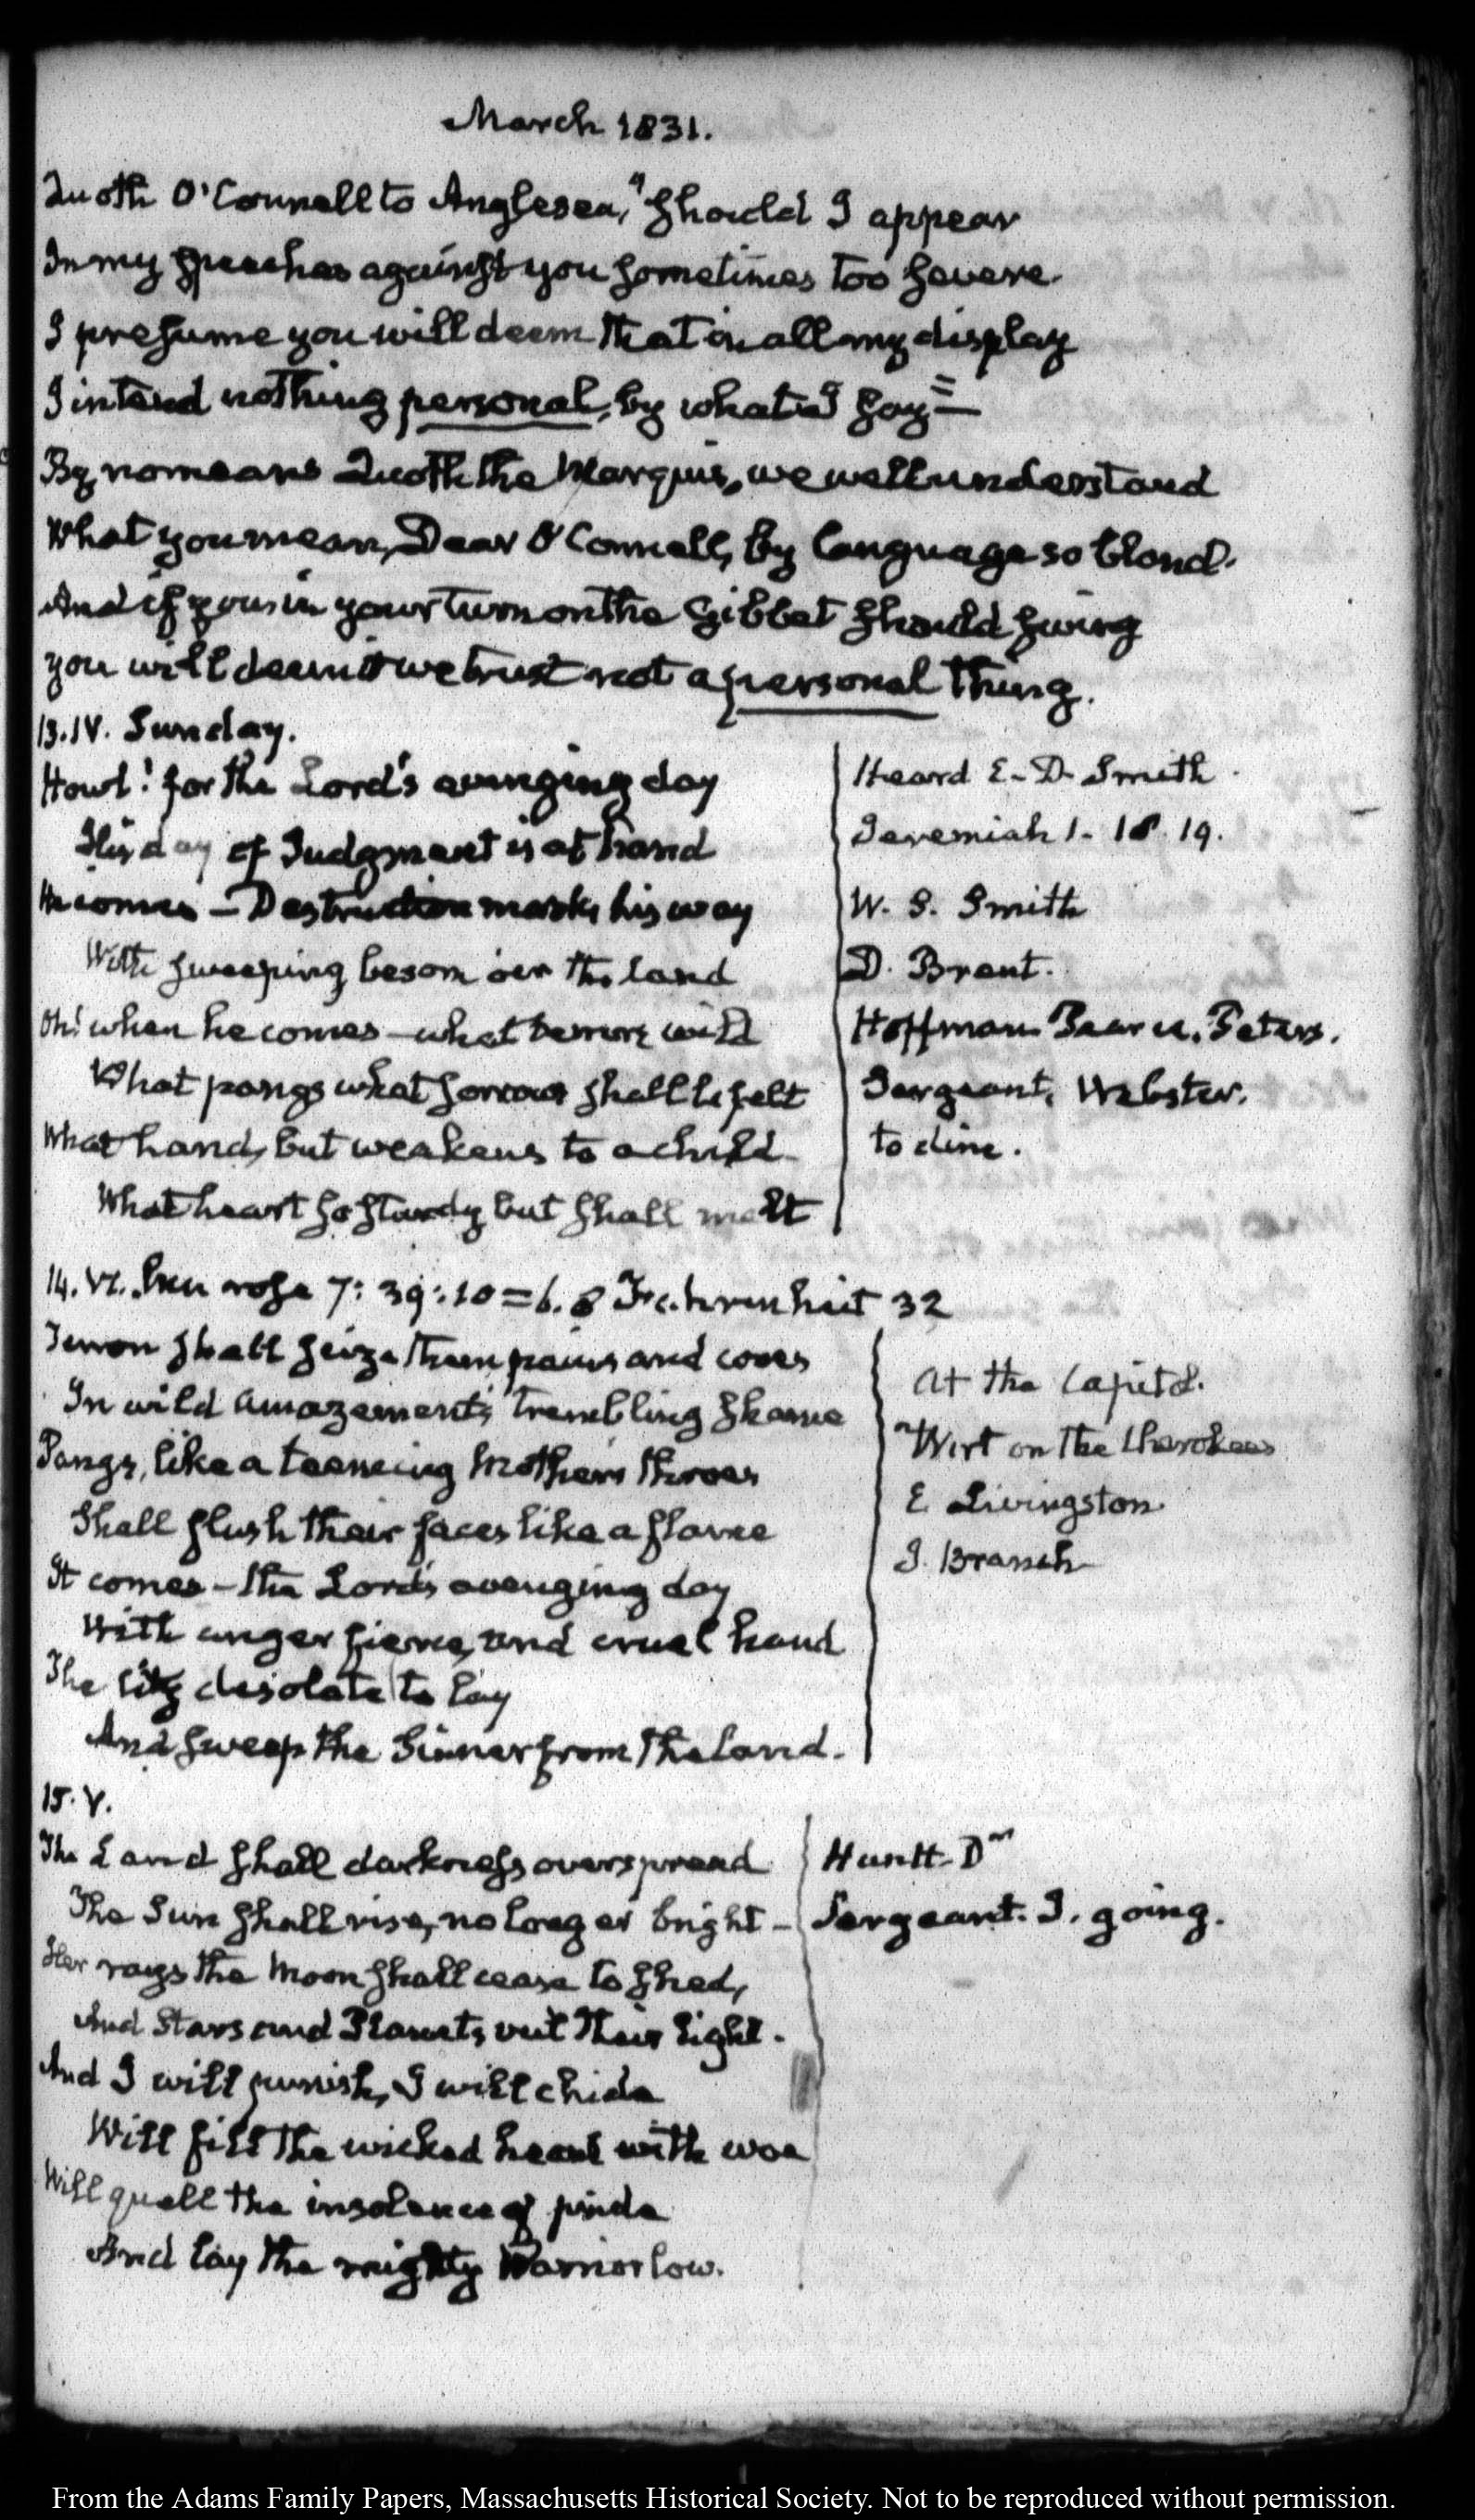 March 1831.
Quoth O'Connell to Anglesea, "Should I appear
In my speeches against you sometimes too severe.
I presume you will deem that in all my display
I intend nothing personal, by what I say"—
By no means Quoth the Marquis, we well understand
What you mean, Dear O'Connell, by language so bland.
And if you in your turn on the Gibbet should swing
you will deem it we trust not a personal thing.
13. IV. Sunday.
Howl! for the Lord's avenging day
His day of Judgment is at hand
He comes — Destruction marks his way
With sweeping besom o'er the land
Oh! when he comes — what terrors wild
What pangs what sorrows shall be felt
What hand, but weakens to a child
What heart so sturdy but shall melt
Heard E. D. Smith.
Jeremiah 1. 18. 19.
W. S. Smith
D. Brent.
Hoffman Pearce. Peters.
Sergeant, Webster.
to dine.
14. VI. Sun rose 7: 39: 10 = 6. 8 Fahrenheit 32
Terror shall seize them pains and woes
In wild amazement, trembling shame
Pangs, like a teeming Mother's throes
Shall flush their faces like a flame
It comes — the Lord's avenging day
With anger fierce, and cruel hand
The city desolate to lay
And sweep the Sinner from the land.
At the Capitol.
Wirt on the Cherokees
E Livingston
J. Branch
15. V.
The Land shall darkness overspread
The Sun shall rise, no longer bright —
Her rays the Moon shall cease to shed,
And Stars and Planets veil their light.
And I will punish, I will chide
Will fill the wicked heart with woe
Will quell the insolence of pride
And lay the mighty Warrior low.
Huntt. Dr
Sergeant. J. going.
From the Adams Family Papers, Massachusetts Historical Society. Not to be reproduced without permission.